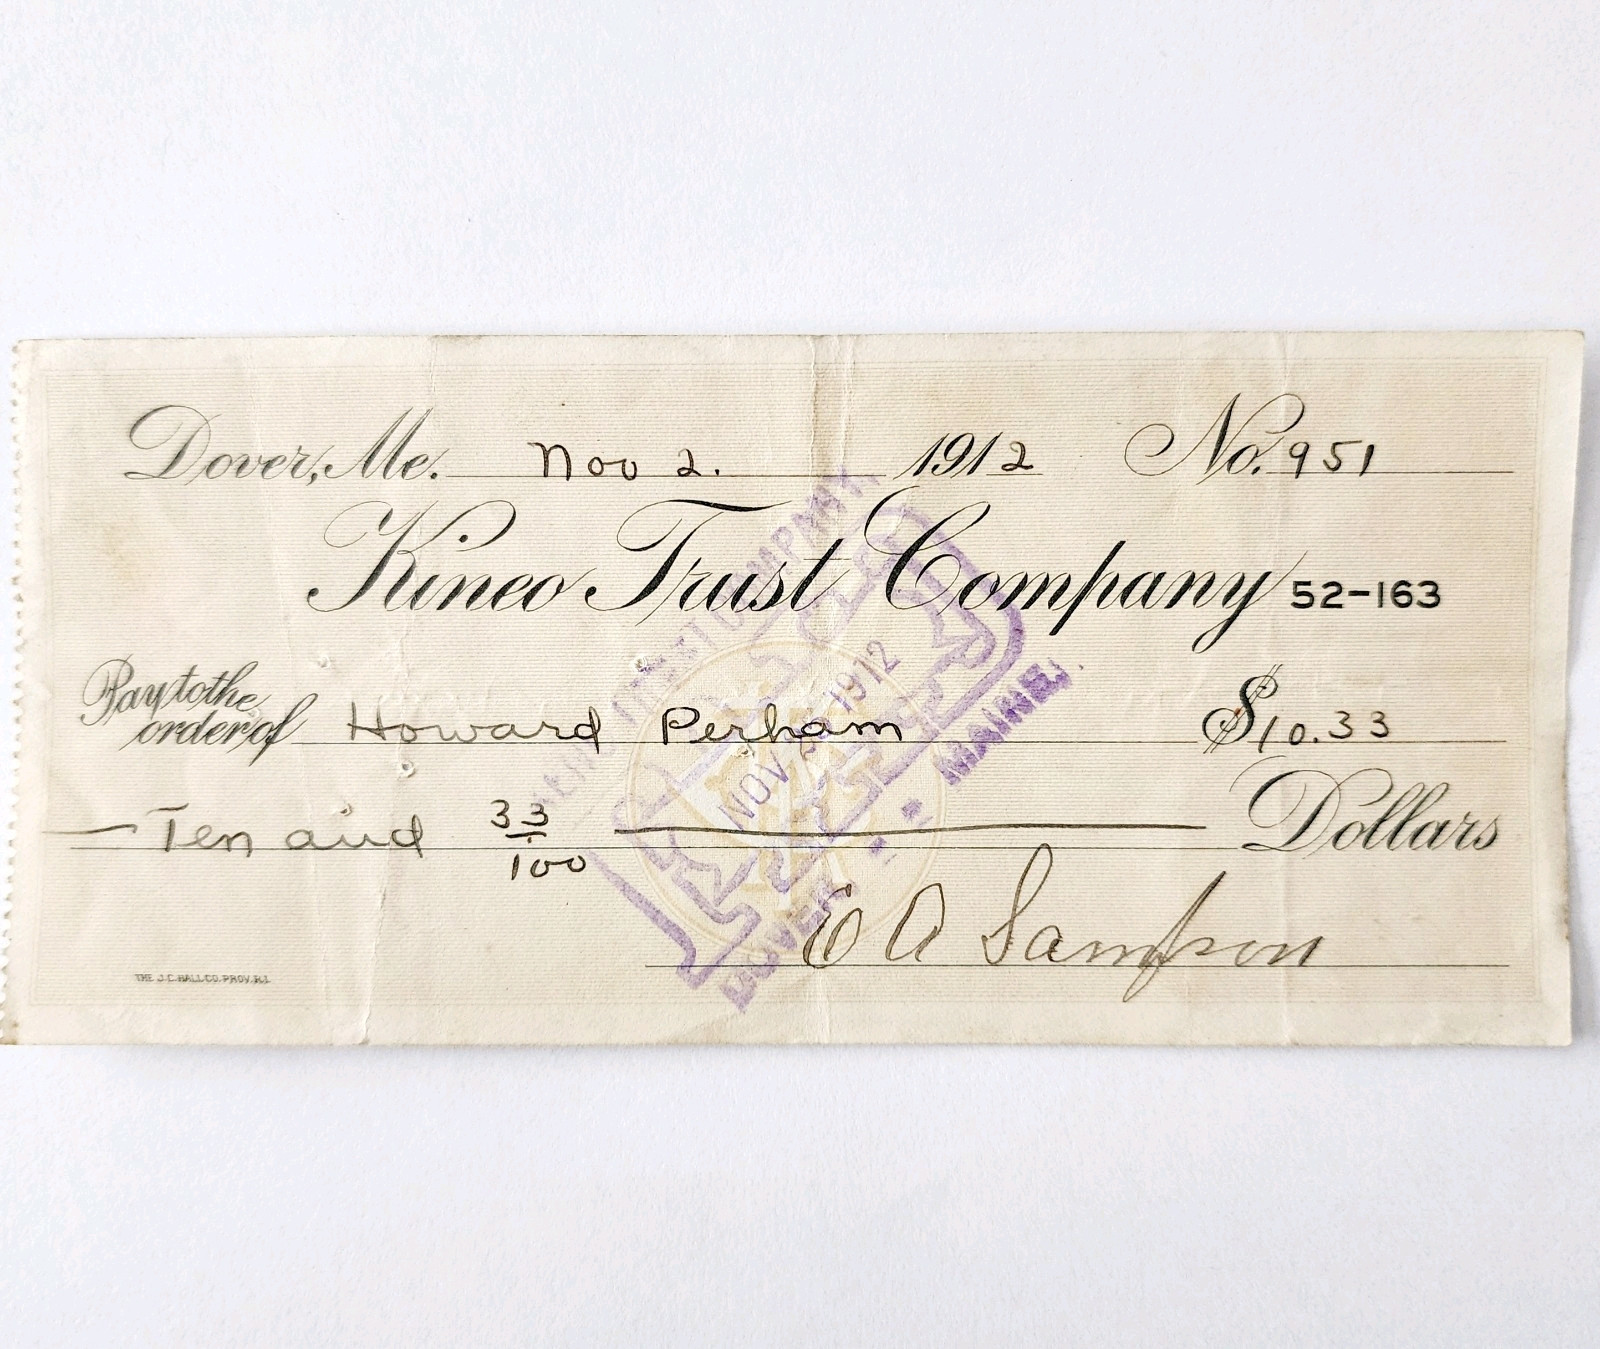 Dover, Me. Nov 2. 1912 No. 951
Kineo Trust Company 52-163
Pay to the order of Howard Perham $10.33
Ten and 33/100 Dollars
E A Sampson
THE J.C. HALL CO. PROV. R.I.
KINEO TRUST COMPANY
NOV 1912
DOVER MAINE.